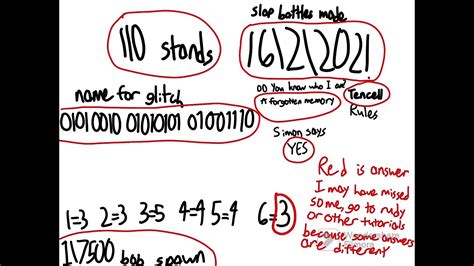 slap battles made
110 stands
16\2\2021
Do You know who I am?
A forgotten memory
Tencell
Rules
name for glitch
01010010 01010101 01001110
Simon says
YES
Red is answer
I may have missed
some, go to rudy
or other tutorials
because some answers
are different
1=3 2=3 3=5 4=4 5=4 6=3
1\7500
bob spawn